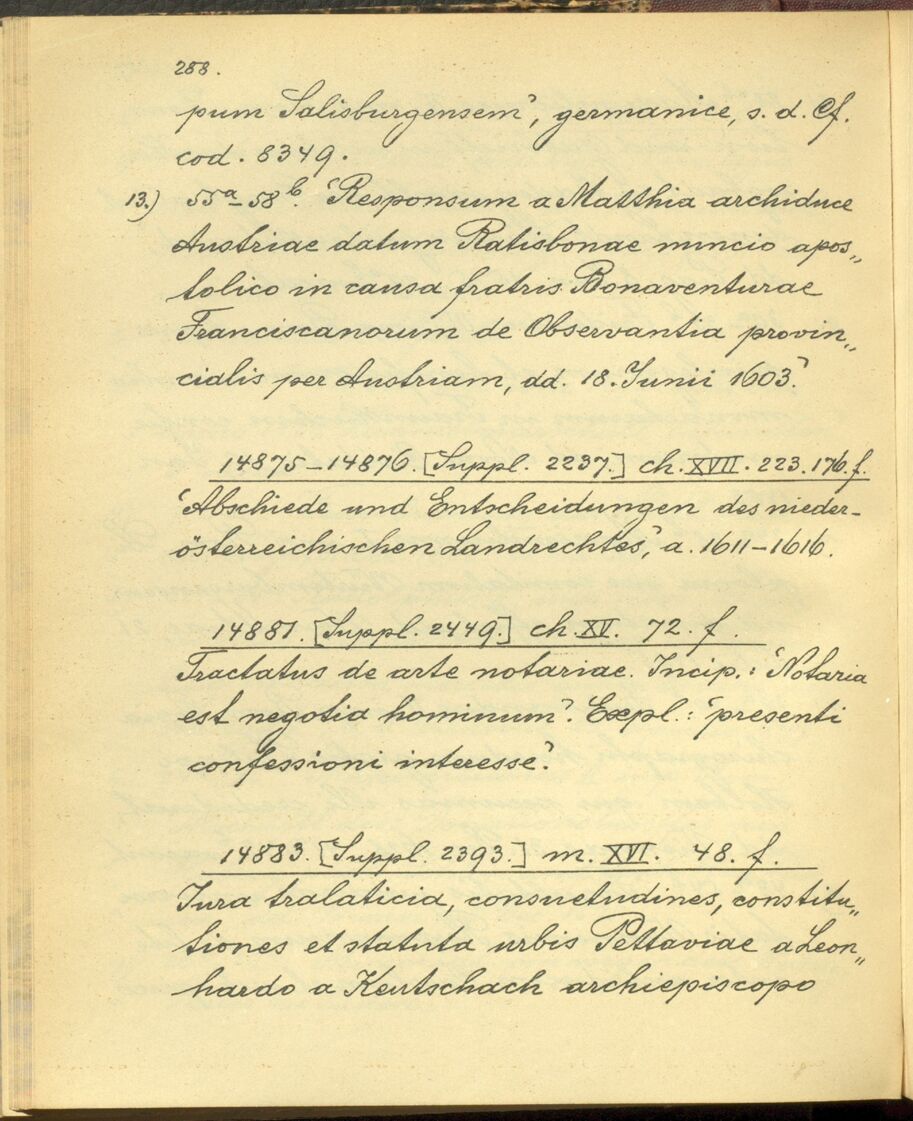 288.
pum Salisburgensem', germanice, s. d. Cf.
cod. 8349.
13.) 55a–58b. 'Responsum a Matthia archiduce
Austriae datum Ratisbonae nuncio apos„
tolico in causa fratris Bonaventurae
Franciscanorum de Observantia provin„
cialis per Austriam, dd. 18. Junii 1603.'
14875–14876. [Suppl. 2237.] ch. XVII. 223. 176. f.
'Abschiede und Entscheidungen des nieder-
österreichischen Landrechtes,' a. 1611–1616.
14881. [Suppl. 2449.] ch. XV. 72. f.
Tractatus de arte notariae. Incip.: 'Notaria
est negotia hominum'. Expl.: 'presenti
confessioni interesse'.
14883. [Suppl. 2393.] m. XVI. 48. f.
Jura tralaticia, consuetudines, constitu„
tiones et statuta urbis Pettaviae a Leon„
hardo a Keutschach archiepiscopo